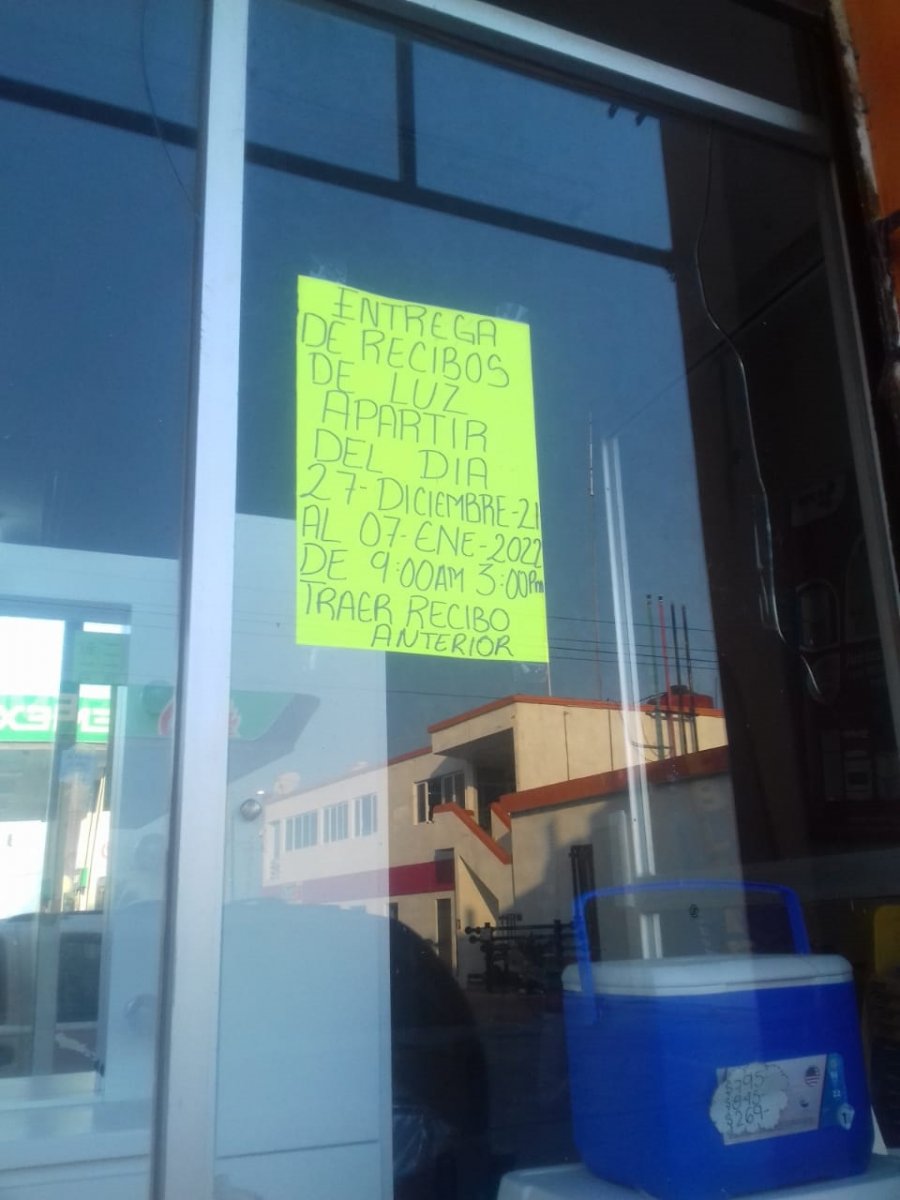 ENTREGA
DE RECIBOS
DE LUZ
APARTIR
DEL DIA
27-DICIEMBRE-21
AL 07-ENE-2022
DE 9:00AM 3:00Pm
TRAER RECIBO
ANTERIOR